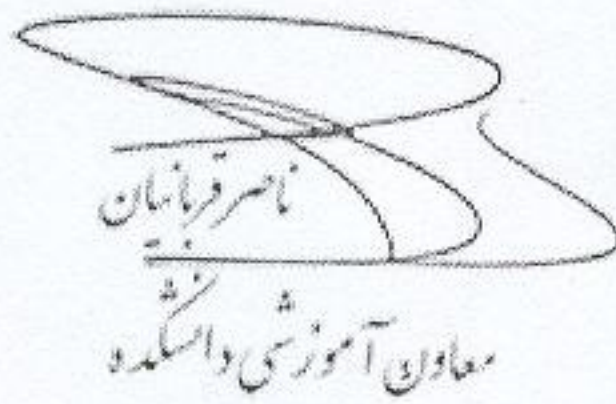 ناصر قربانیان
معاون آموزشی دانشکده